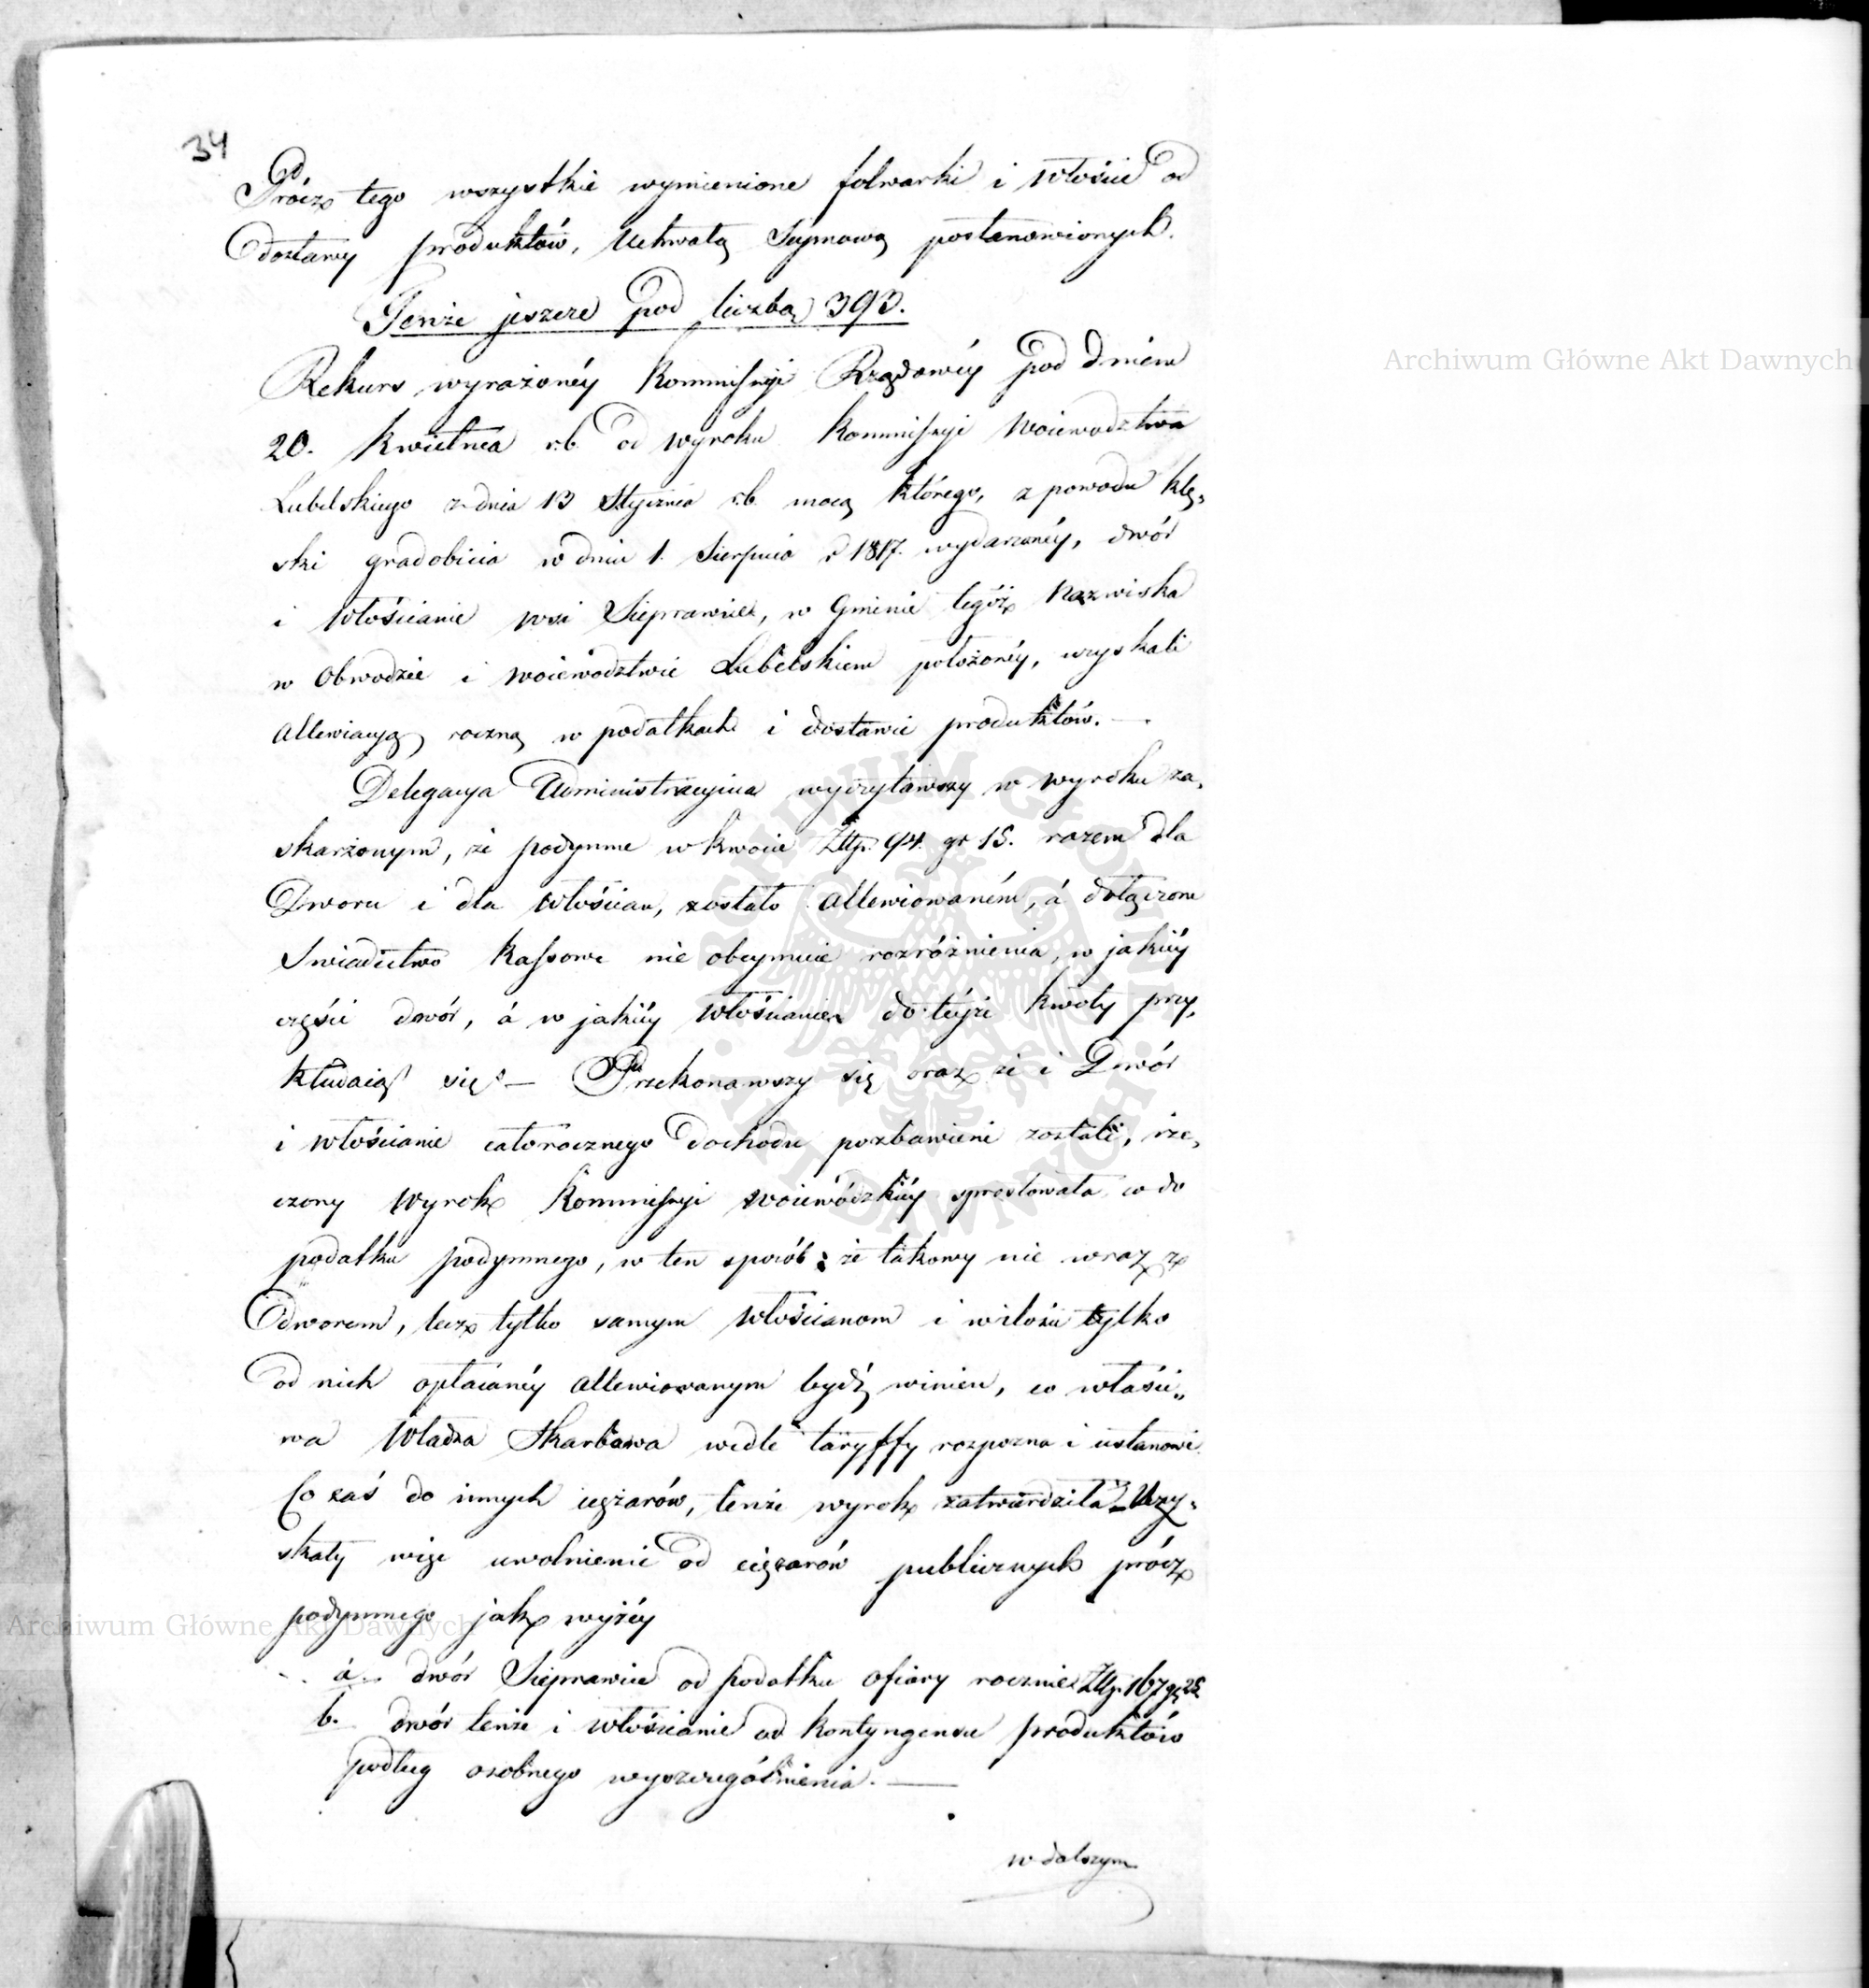 34
Prócz tego wszystkie wymienione folwarki i włoście od
dostawy produktów, Uchwałą Seymową postanowionych.
Tenże jeszcze pod liczbą 393.
Rekurs wyrażonéy Kommissyi Rządowéy pod dniem
20. Kwietnia r.b. od wyroku Kommissyi Woiewodztwa
Lubelskiego z dnia 13 Stycznia r.b. mocą którego, z powodu klę„
ski gradobicia w dniu 1. Sierpnia r 1817. wydarzonéy, dwór
i Włościanie wsi Sieprawice, w Gminie tegóż Nazwiska
w Obwodzie i Woiewodztwie Lubelskiem położonéy, uzyskali
allewiacyą roczną w podatkach i dostawie produktów. —.
Delegacya Administracyina wyczytawszy w wyroku za„
skarżonym, że podymne w kwocie Złłp. 94. gr 15. razem dla
Dworu i dla Włościan, zostało allewiowaném, á dołączone
Swiadectwo Kassowe nie obeymuie rozróżnienia, w jakiéy
części dwór, á w jakiéy Włościanie do téyże kwoty przy„
kładaią się — Przekonawszy się oraz że i Dwór
i Włościanie całorocznego dochodu pozbawieni zostali, rze„
czony Wyrok Kommissyi Woiewódzkiéy sprostowała co do
podatku podymnego, w ten sposób: że takowy nie wraz z
dworem, lecz tylko samym Włościanom i w ilości tylko
od nich opłacanéy allewiowanym bydź winien, co właści„
wa Władza Skarbowa wedle taryffy rozpozna i ustanowi.
Co zaś do innych ciężarów, tenże wyrok zatwierdziła – Uzy„
skały więc uwolnienie od ciężarów publicznych prócz
podymnego jak wyżéy
a. dwór Sieprawice od podatku ofiary rocznie Złłp. 167 gr 25
b. dwór tenże i Włościanie od kontyngensu produktów
podług osobnego wyszczególnienia. —
w dalszym
Archiwum Główne Akt Dawnych
Archiwum Główne Akt Dawnych
ARCHIWUM GŁÓWNE AKT DAWNYCH